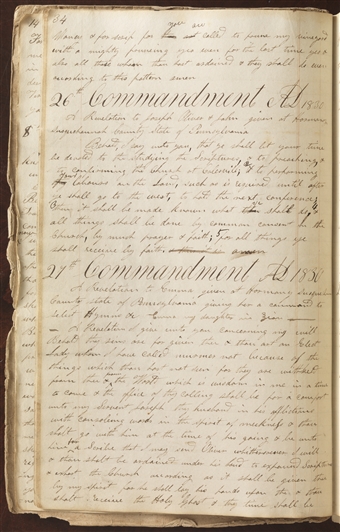 34
you are
Coney & for scrip for called to prune my vineyard
with a mighty pruneing yea even for the last time yea &
also all those whom thou hast ordained & they shall do even
according to this pattern amen
26th Commandment AD 1830
A Revelation to Joseph Oliver & John given at Harmony
Susquehannah County State of Pennsylvania
Behold, I say unto you, that ye shall let your time
be devoted to the studying the Scriptures, & to preaching, &
to confirming the Church at Colesville; & to performing
your labours on the Land, such as is required, until after
ye shall go to the west, to hold the next conference;
& then it shall be made known what ye shall do, &
all things shall be done by common consent in the
Church, by much prayer & faith; for all things ye
shall receive by faith, amen
27th Commandment AD 1830
A Revelation to Emma given at Harmony Susquehannah
County State of Pennsylvania giving her a command to
select Hymns & Emma my daughter in Zion
A Revelation I give unto you concerning my will
Behold thy sins are for given thee & thou art an Elect
Lady whom I have called murmer not because of the
things which thou hast not seen for they are withheld
from thee & the World which is wisdom in me in a time
to come & the office of thy calling shall be for a comfort
unto my Servent Joseph thy husband in his afflictions
with consoleing words in the spirit of meekness & thou
shalt go with him at the time of his going & be unto
him for a Scribe that I may send Oliver whithersoever I will
& thou shalt be ordained under his hand to expound Scriptures
& exhort the Church according as it shall be given thee
by my spirit for he shall lay his hands upon thee & thou
shalt receive the Holy Ghost & thy time shall be